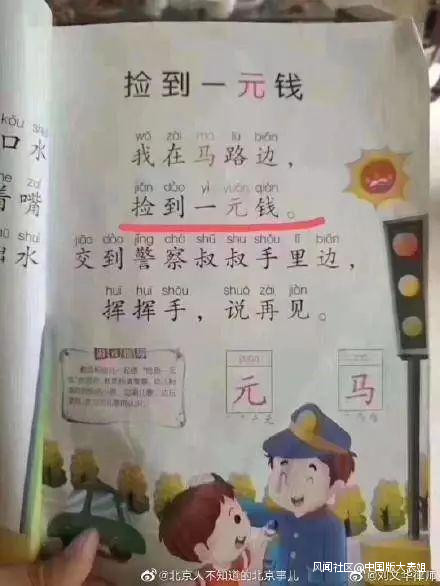 捡到一元钱
wǒ zài mǎ lù biān
我在马路边，
jiǎn dào yì yuán qián
捡到一元钱。
jiāo dào jǐng chá shū shu shǒu lǐ biān
交到警察叔叔手里边，
huī huī shǒu shuō zài jiàn
挥挥手，说再见。
kǒu shuǐ
口水
zuǐ
着嘴
shuǐ
水
游戏指导
yuán
元
马
@北京人不知道的北京事儿
风闻社区@中国版大表姐
@刘文华律师